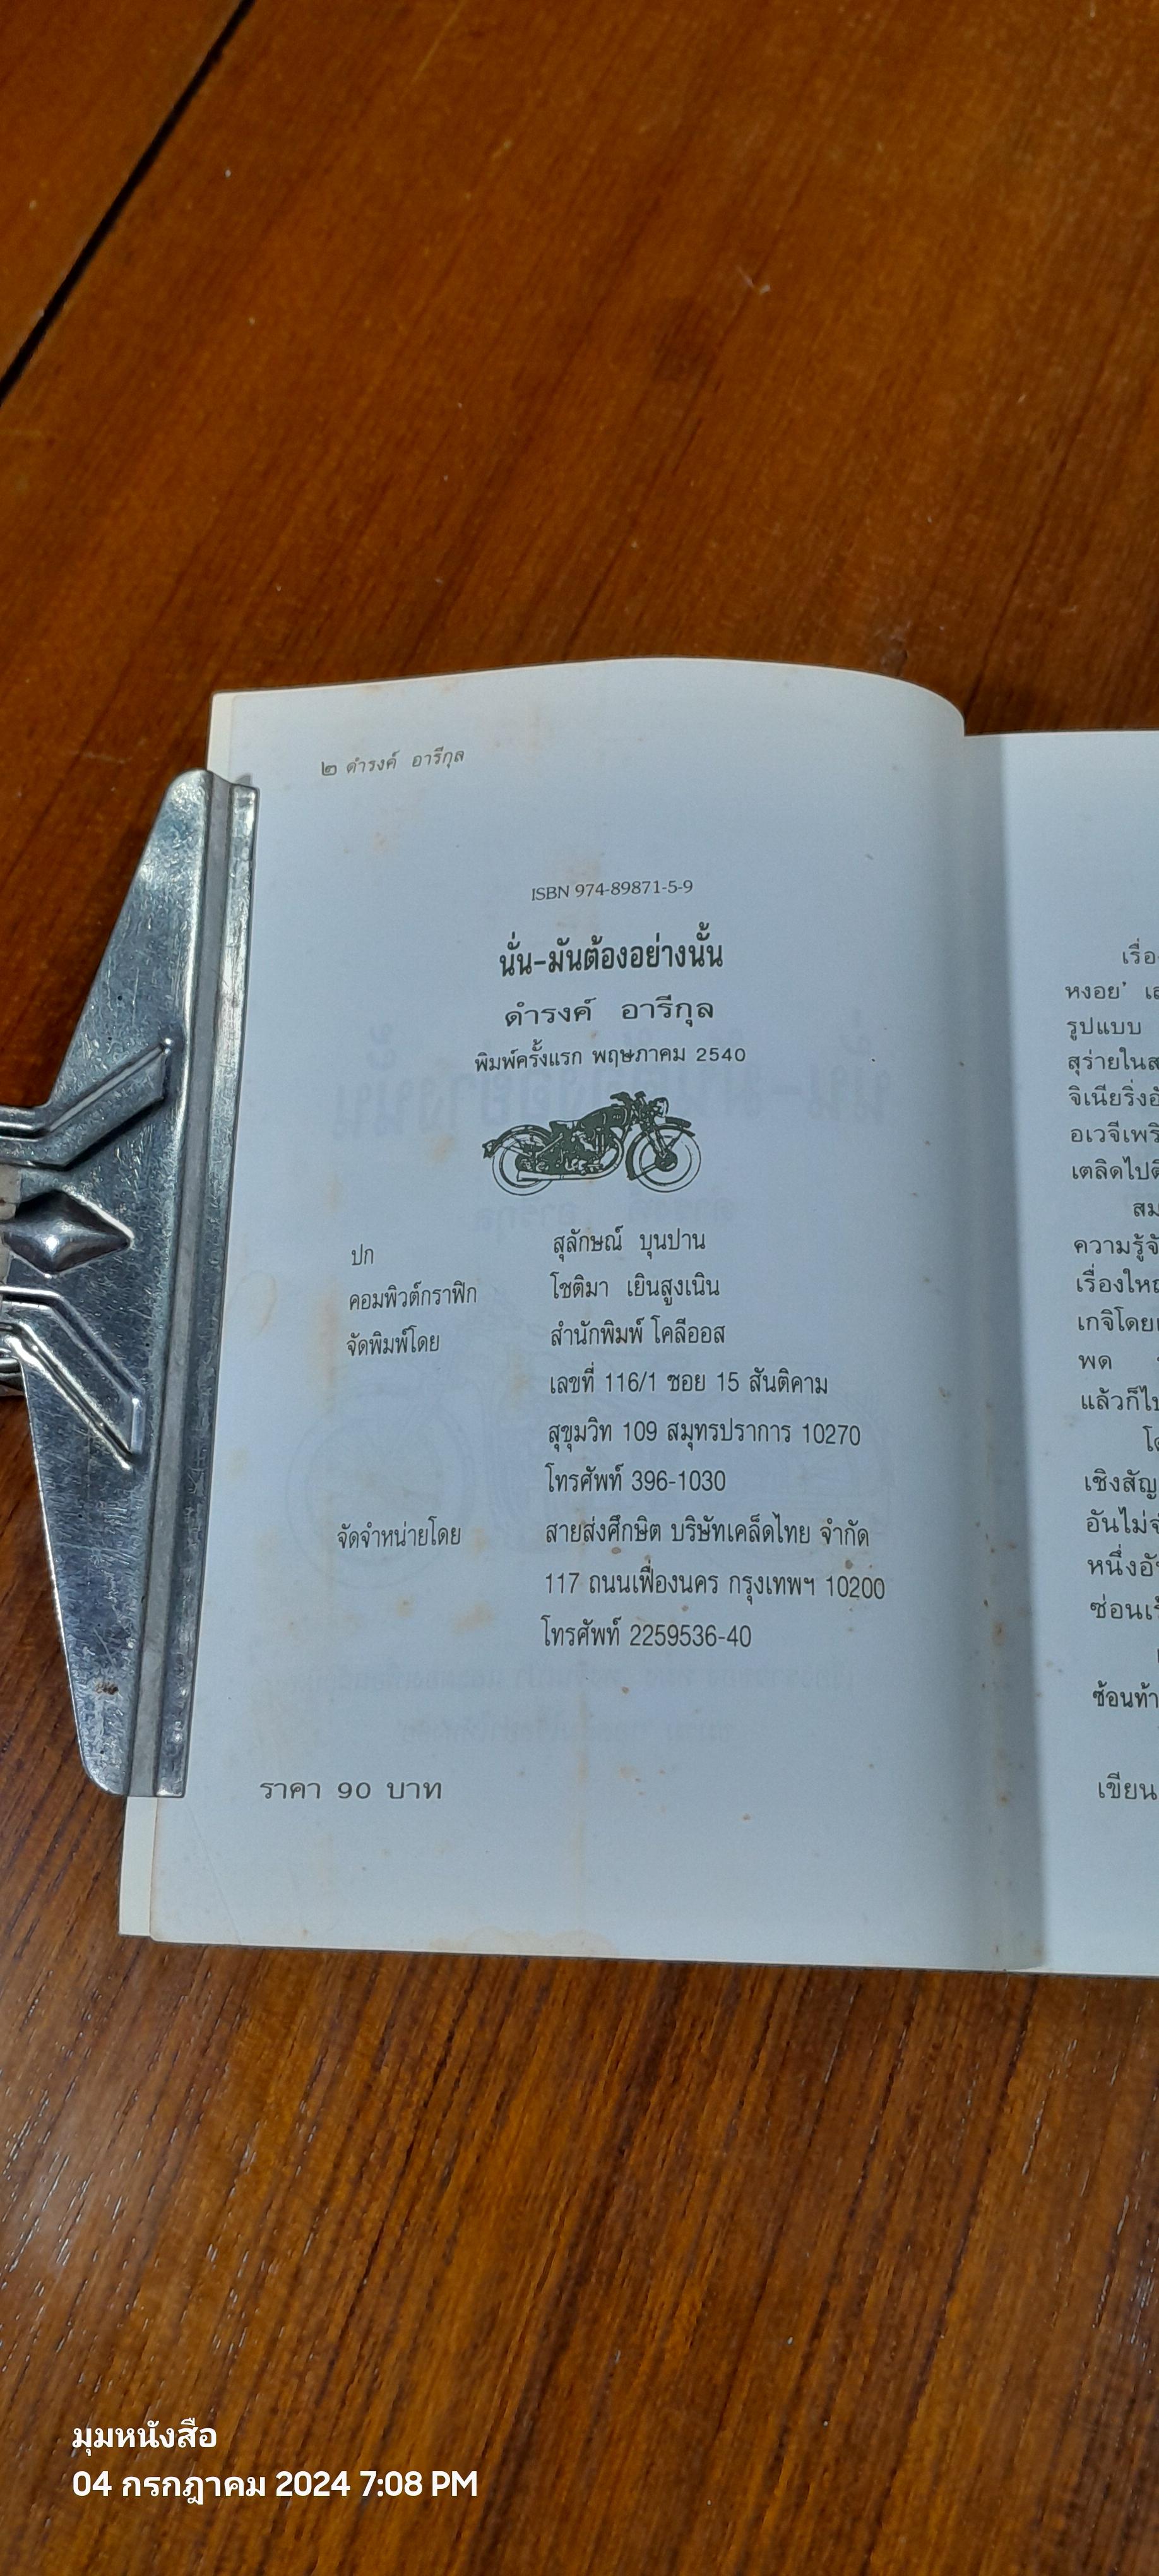 ๒ ดำรงค์ อารีกุล
ISBN 974-89871-5-9
นั่น-มันต้องอย่างนั้น
ดำรงค์ อารีกุล
พิมพ์ครั้งแรก พฤษภาคม 2540
ปก สุลักษณ์ บุนปาน
คอมพิวต์กราฟิก โชติมา เยินสูงเนิน
จัดพิมพ์โดย สำนักพิมพ์ โคลีออส
เลขที่ 116/1 ซอย 15 สันติคาม
สุขุมวิท 109 สมุทรปราการ 10270
โทรศัพท์ 396-1030
จัดจำหน่ายโดย สายส่งศึกษิต บริษัทเคล็ดไทย จำกัด
117 ถนนเฟื่องนคร กรุงเทพฯ 10200
โทรศัพท์ 2259536-40
ราคา 90 บาท
หงอย'
รูปแบบ
สุร่ายใน
จิเนียริ่ง
อเวจี
เตลิดไป
ความรู้
เรื่อง
เกจิโดย
พด
แล้วก็
เชิง
อันไม่
หนึ่ง
ซ่อน
ซ้อนท้า
เขียน
มุมหนังสือ
04 กรกฎาคม 2024 7:08 PM